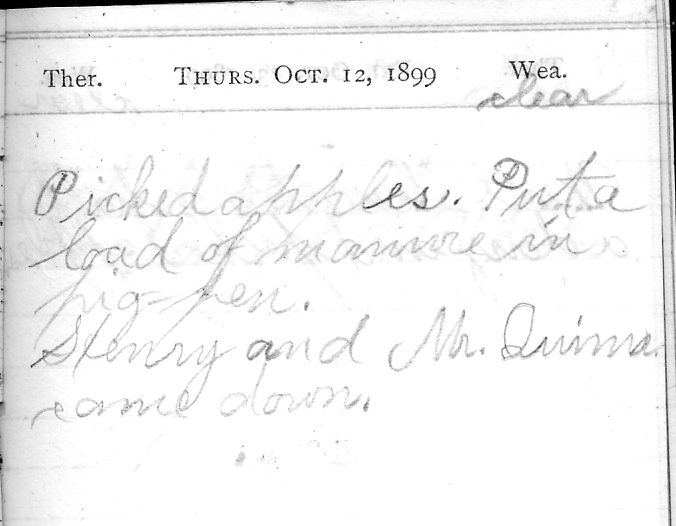 Ther. THURS. OCT. 12, 1899 Wea.
clear
Picked apples. Put a
load of manure in
pig-pen.
Henry and Mr.
came down.